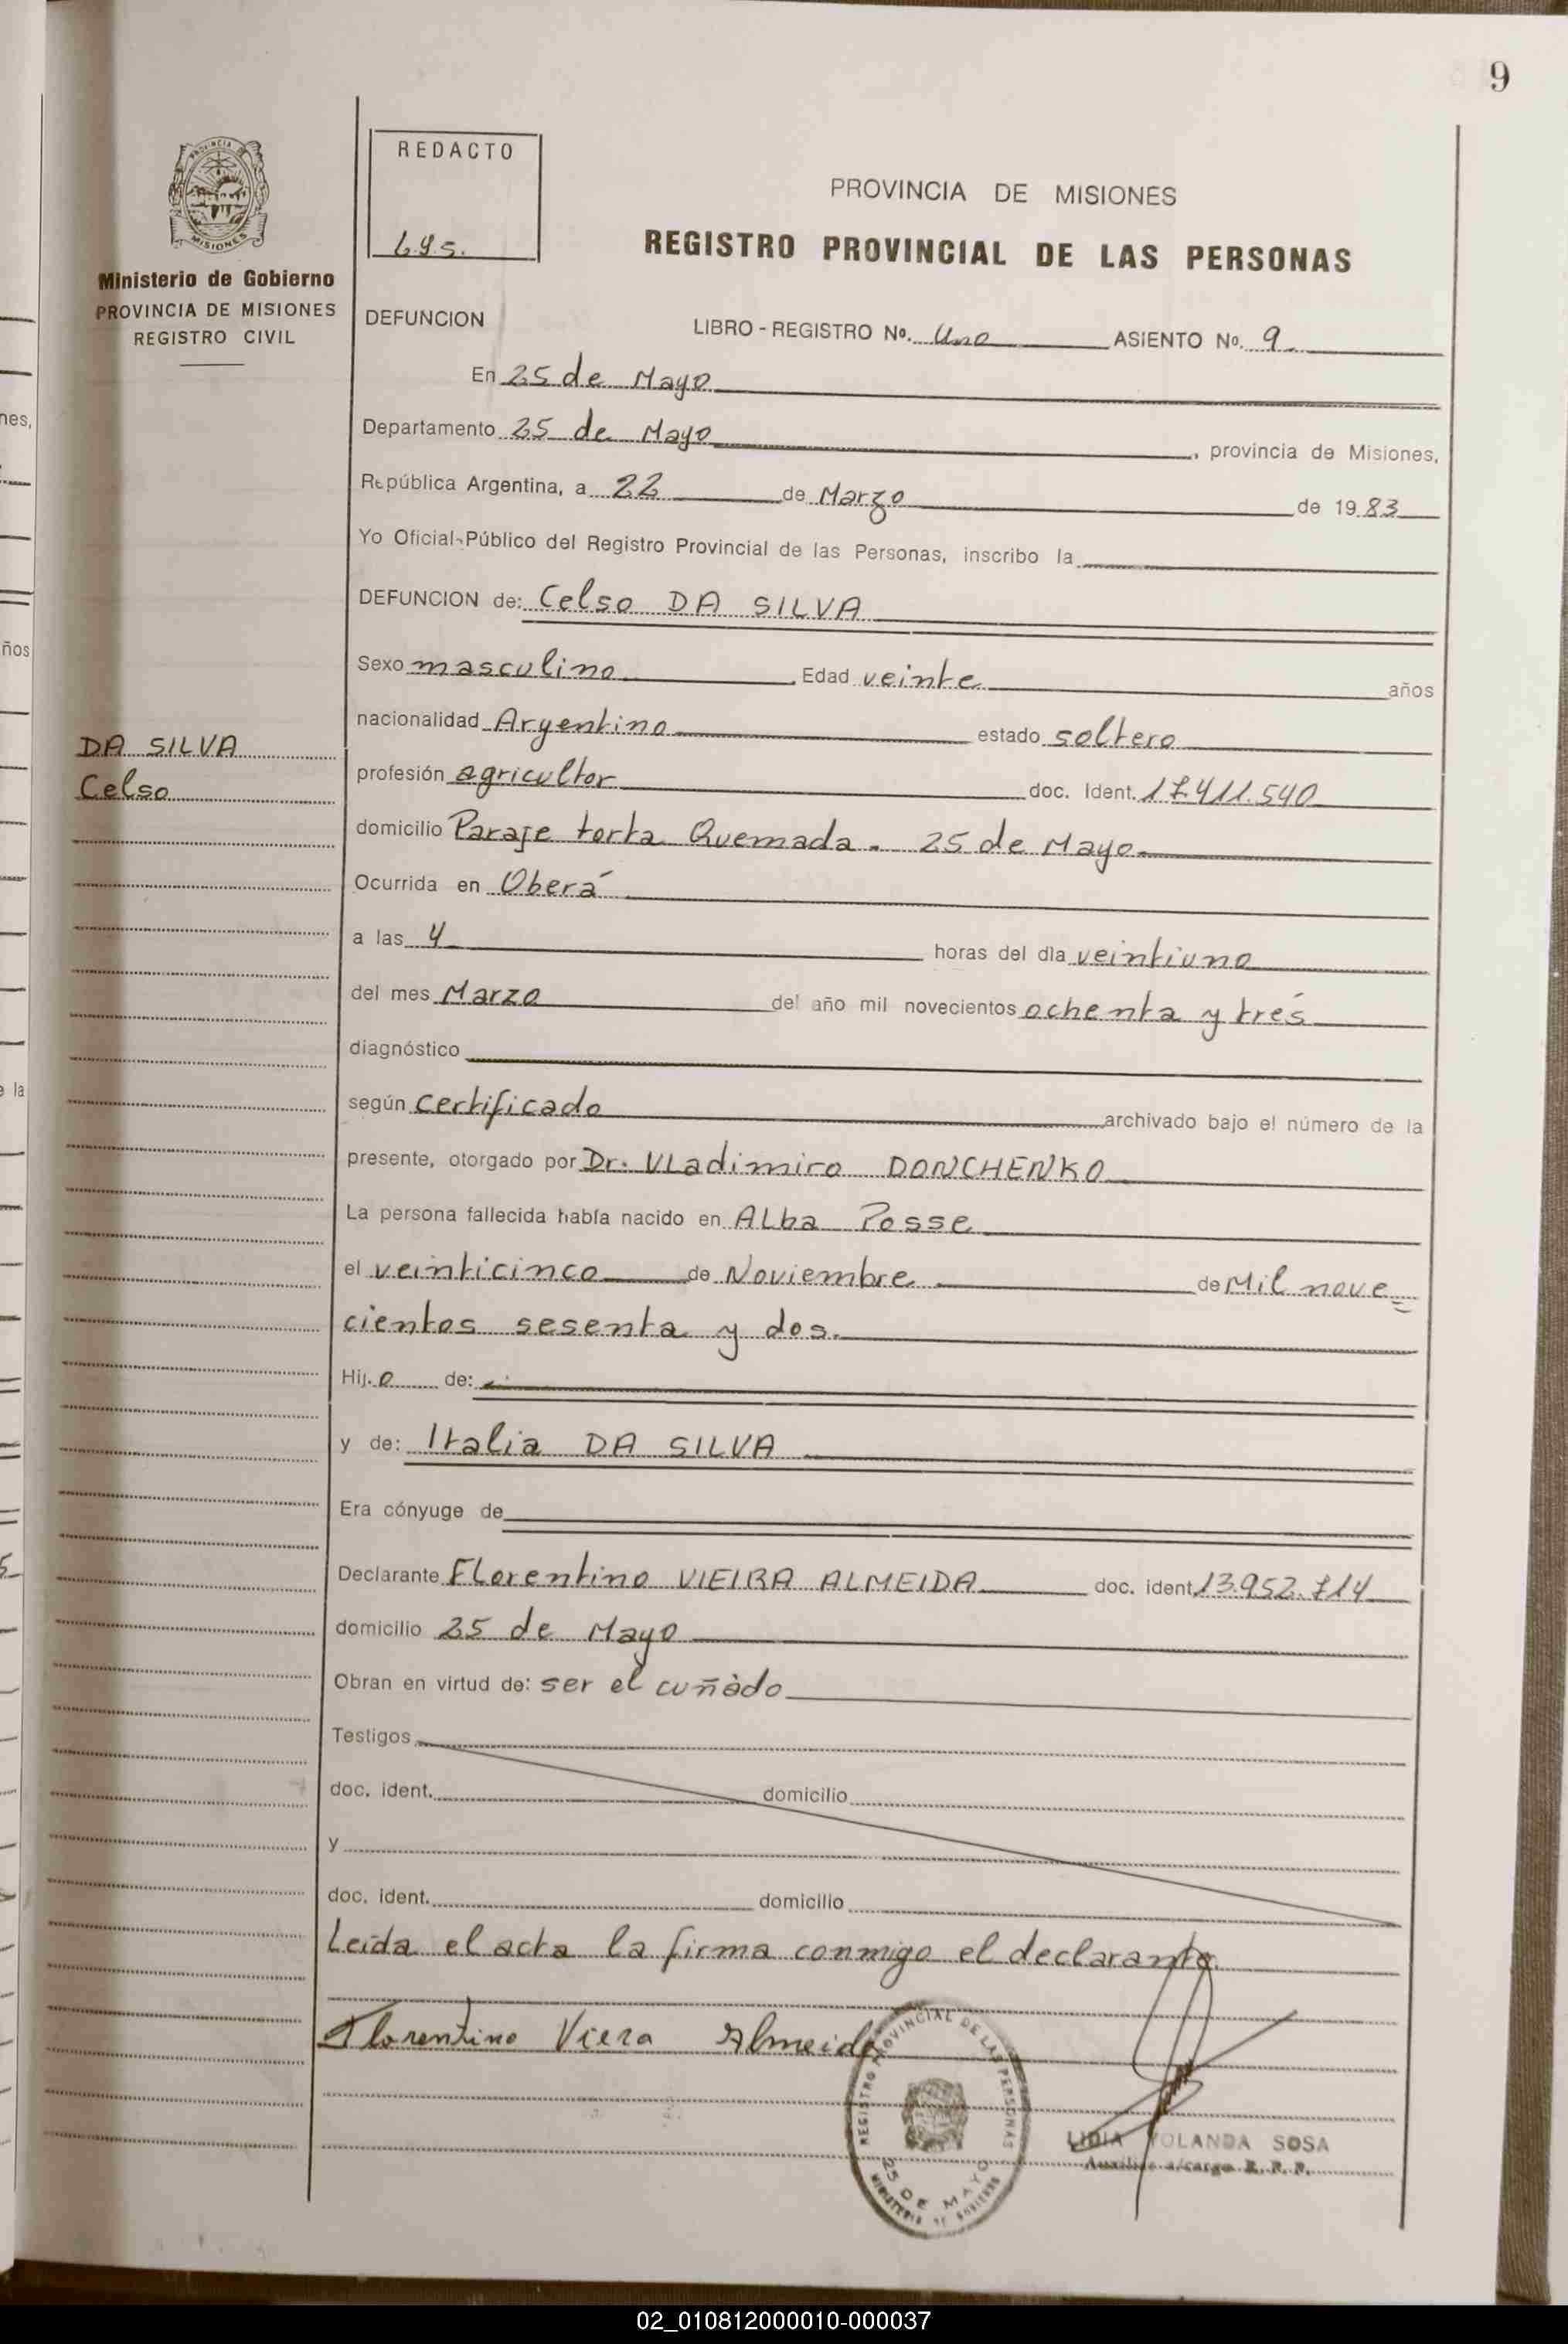 9
REDACTO
L.Y.S.
PROVINCIA DE MISIONES
REGISTRO PROVINCIAL DE LAS PERSONAS
PROVINCIA DE
MISIONES
Ministerio de Gobierno
PROVINCIA DE MISIONES
REGISTRO CIVIL
DEFUNCION LIBRO - REGISTRO Nº. Uno ASIENTO Nº. 9
En 25 de Mayo
Departamento 25 de Mayo, provincia de Misiones,
República Argentina, a 22 de Marzo de 1983
Yo Oficial Público del Registro Provincial de las Personas, inscribo la
DEFUNCION de: Celso DA SILVA
Sexo masculino. Edad veinte años
nacionalidad Argentino estado soltero
DA SILVA
Celso
profesión agricultor doc. Ident. 17.411.540
domicilio Paraje torta Quemada. 25 de Mayo
Ocurrida en Oberá
a las 4 horas del día veintiuno
del mes Marzo del año mil novecientos ochenta y trés
diagnóstico
según certificado archivado bajo el número de la
presente, otorgado por Dr. Vladimiro DONCHENKO
La persona fallecida había nacido en Alba Posse
el veinticinco de Noviembre de Mil nove=
cientos sesenta y dos.
Hij.o de:
y de: Italia DA SILVA
Era cónyuge de
Declarante Florentino VIEIRA ALMEIDA doc. ident. 13.952.714
domicilio 25 de Mayo
Obran en virtud de: ser el cuñado
Testigos
doc. ident. domicilio
y
doc. ident. domicilio
Leída el acta la firma conmigo el declarante.
Florentino Viera Almeida
REGISTRO PROVINCIAL DE LAS PERSONAS
25 DE MAYO
MINISTERIO DE GOBIERNO
LIDIA YOLANDA SOSA
Auxiliar a/cargo R. P. P.
nes,
ños
e la
02_010812000010-000037